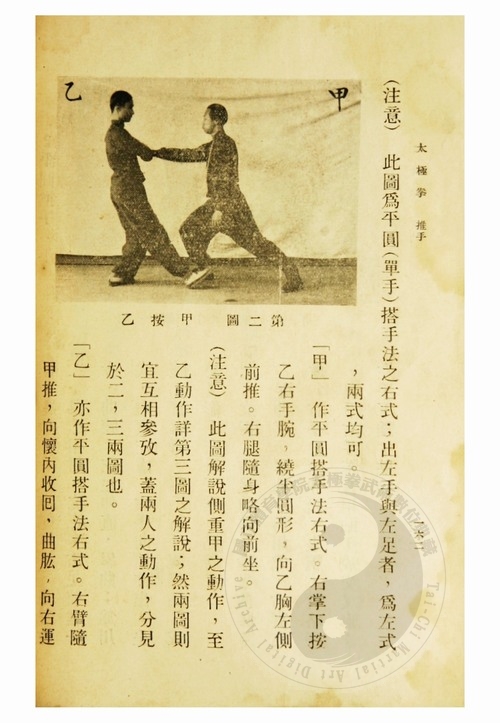 太極拳 推手
(注意) 此圖爲平圓(單手)搭手法之右式；出左手與左足者，爲左式
，兩式均可。
乙
甲
第二圖 甲按乙
「甲」 作平圓搭手法右式。右掌下按
乙右手腕，繞半圓形，向乙胸左側
前推。右腿隨身略向前坐。
(注意) 此圖解說側重甲之動作，至
乙動作詳第三圖之解說；然兩圖則
宜互相參攷，蓋兩人之動作，分見
於二，三兩圖也。
「乙」 亦作平圓搭手法右式。右臂隨
甲推，向懷內收囘，曲肱，向右運
Tai-Chi Martial Art Digital Archive